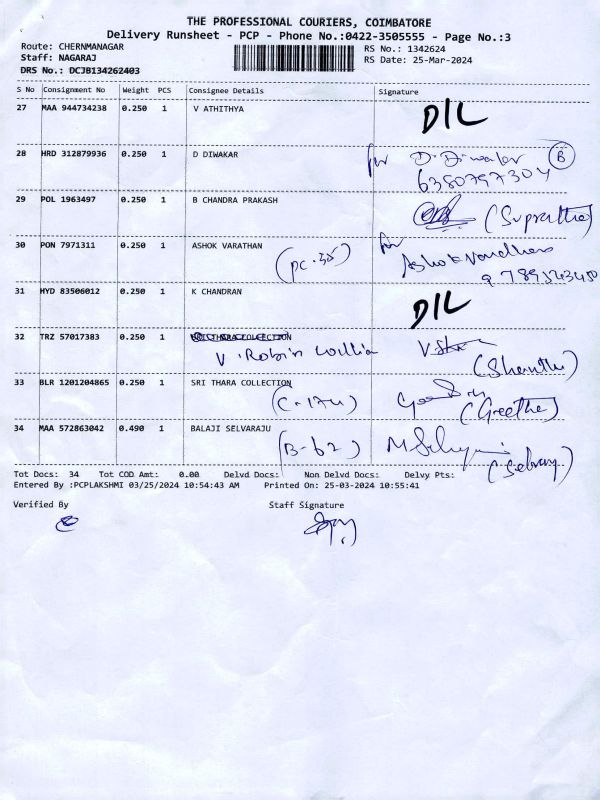 THE PROFESSIONAL COURIERS, COIMBATORE
Delivery Runsheet - PCP - Phone No.:0422-3505555 - Page No.:3
Route: CHERNMANAGAR RS No.: 1342624
Staff: NAGARAJ RS Date: 25-Mar-2024
DRS No.: DCJB134262403
S No Consignment No Weight PCS Consignee Details Signature
27 MAA 944734238 0.250 1 V ATHITHYA D/L
28 HRD 312879936 0.250 1 D DIWAKAR for D. Diwaker B
6380797304
29 POL 1963497 0.250 1 B CHANDRA PRAKASH (Supratha)
30 PON 7971311 0.250 1 ASHOK VARATHAN (PC-35) for
Ashok Varadhan
31 HYD 83506012 0.250 1 K CHANDRAN D/L
32 TRZ 57017383 0.250 1
V. Robin William (Shanthi)
33 BLR 1201204865 0.250 1 SRI THARA COLLECTION
(C-174) (Geetha)
34 MAA 572863042 0.490 1 BALAJI SELVARAJU
(B-62) (Selvaraj)
Tot Docs: 34 Tot COD Amt: 0.00 Delvd Docs: Non Delvd Docs: Delvy Pts:
Entered By :PCPLAKSHMI 03/25/2024 10:54:43 AM Printed On: 25-03-2024 10:55:41
Verified By Staff Signature